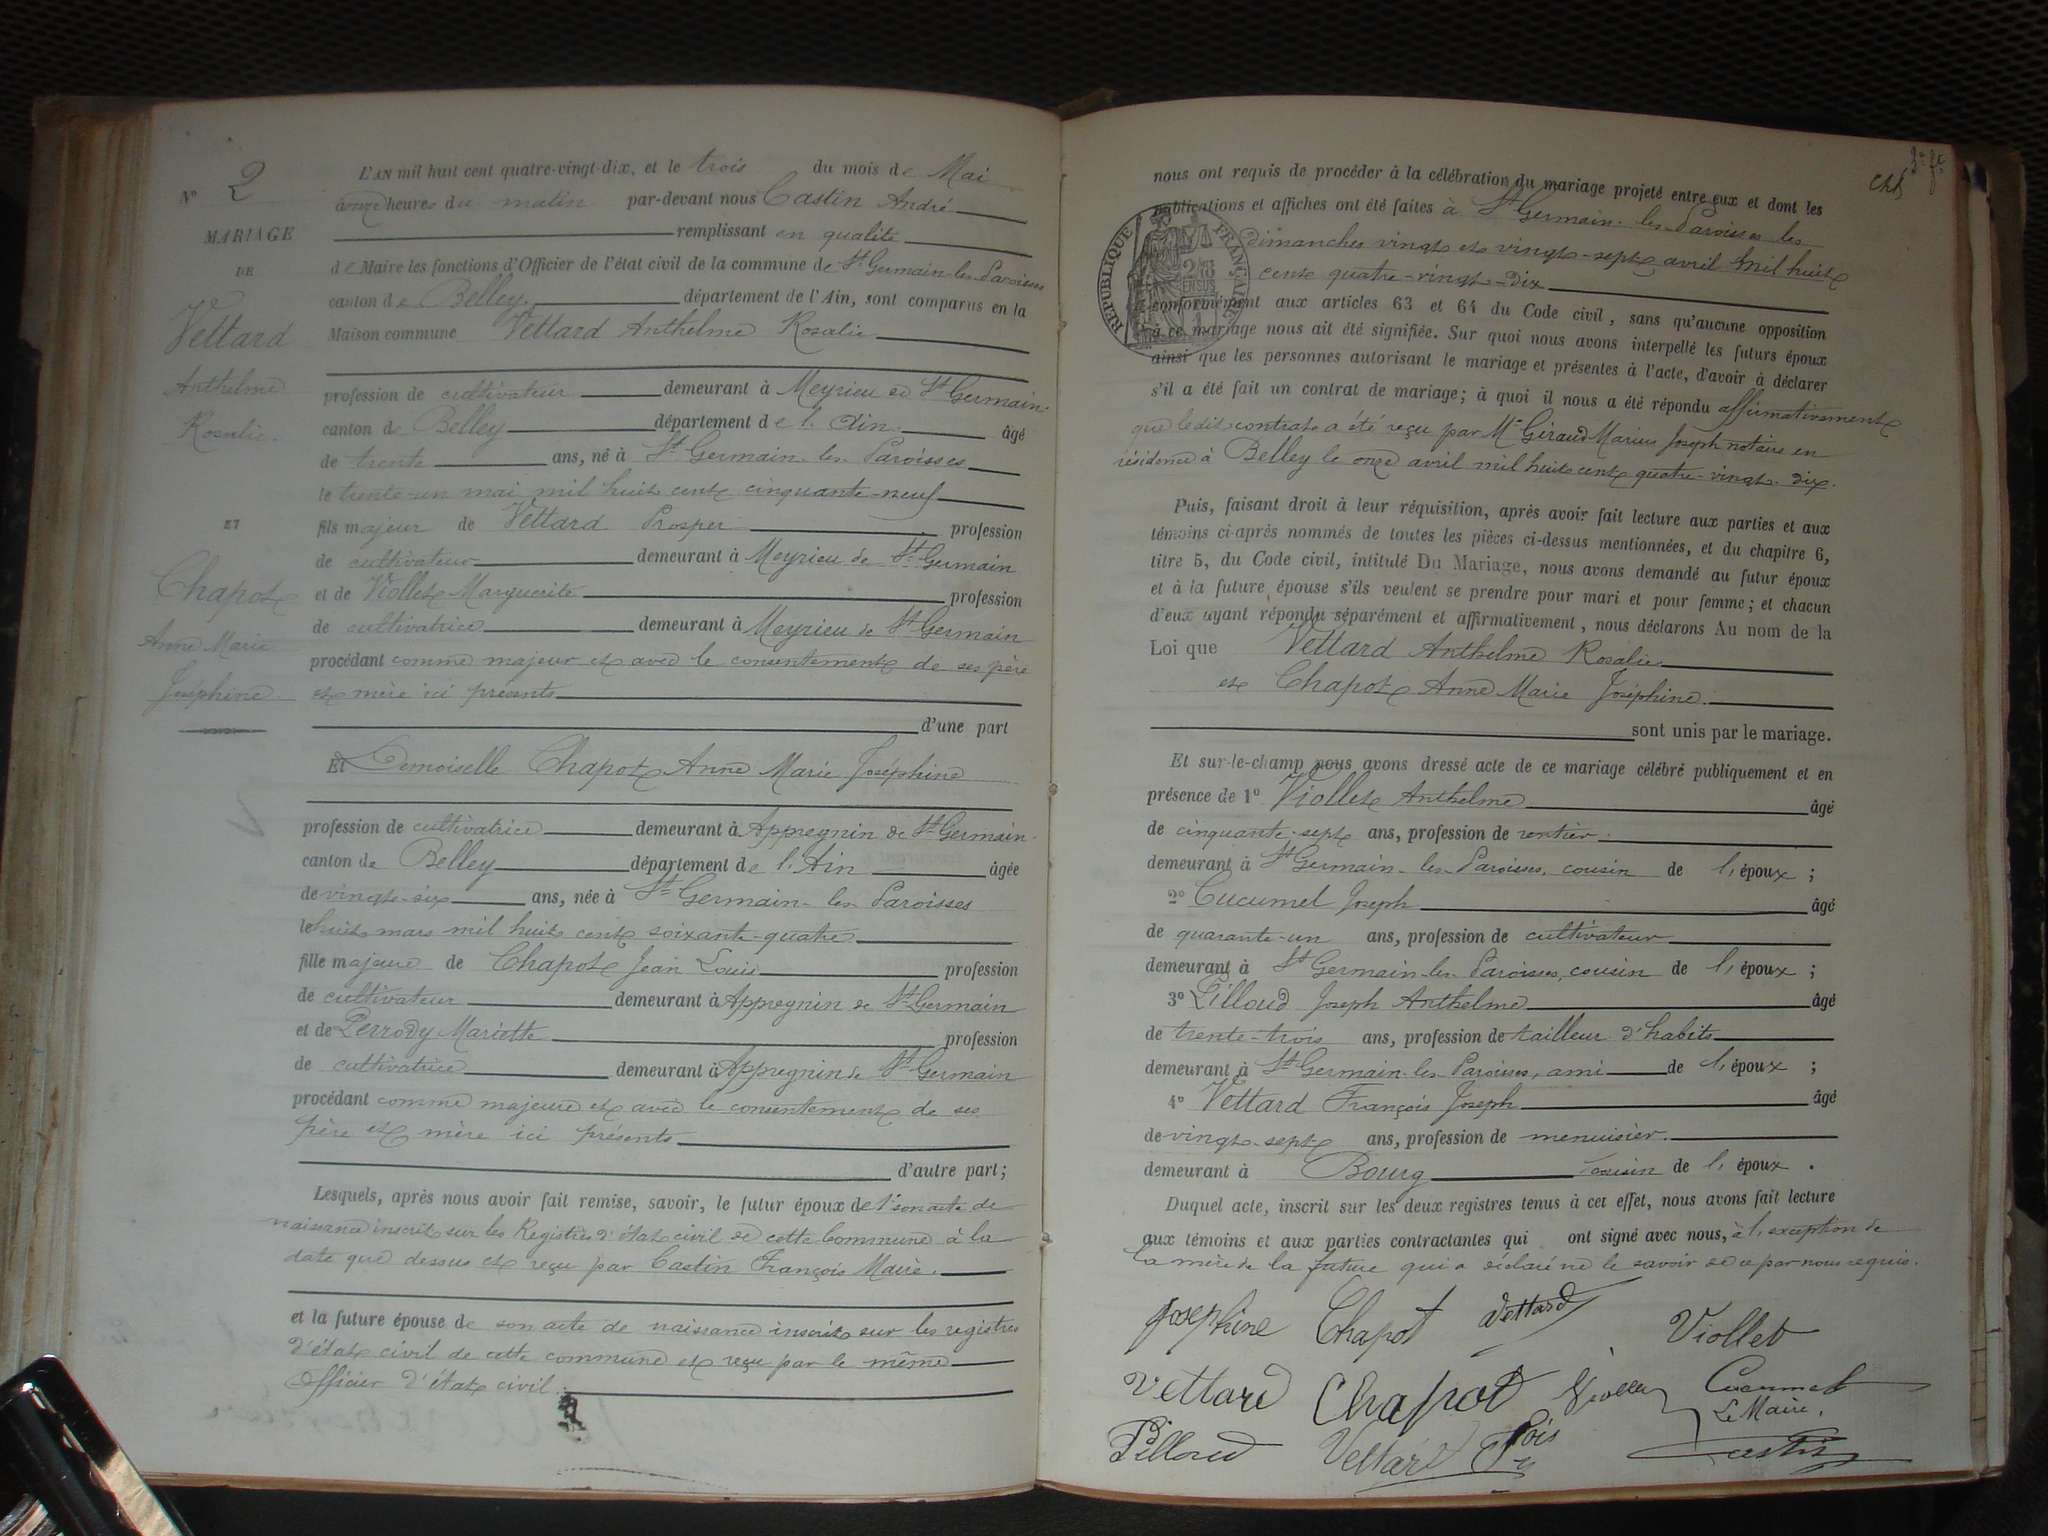 N° 2
MARIAGE
DE
Vettard
Anthelme
Rosalie.
ET
Chapot
Anne Marie
Joséphine.
L'AN mil huit cent quatre-vingt-dix, et le trois du mois de Mai
onze heures du matin par-devant nous Castin André
remplissant en qualité
de Maire les fonctions d'Officier de l'état civil de la commune de St Germain-les-Paroisses
canton de Belley. département de l'Ain, sont comparus en la
Maison commune Vettard Anthelme Rosalie
profession de cultivateur demeurant à Meyrieu de St Germain.
canton de Belley département de l'Ain. âgé
de trente ans, né à St Germain-les-Paroisses
le trente-un mai mil huit cent cinquante-neuf
fils majeur de Vettard Prosper profession
de cultivateur demeurant à Meyrieu de St Germain
et de Viollet Marguerite profession
de cultivatrice demeurant à Meyrieu de St Germain
procédant comme majeur et avec le consentement de ses père
et mère ici présents
d'une part
Et Demoiselle Chapot Anne Marie Joséphine
profession de cultivatrice demeurant à Appregnin de St Germain.
canton de Belley département de l'Ain âgée
de vingt-six ans, née à St Germain-les-Paroisses
le huit mars mil huit cent soixante-quatre
fille majeure de Chapot Jean Louis profession
de cultivateur demeurant à Appregnin de St Germain
et de Perrody Mariette profession
de cultivatrice demeurant à Appregnin de St Germain
procédant comme majeure et avec le consentement de ses
père et mère ici présents
d'autre part;
Lesquels, après nous avoir fait remise, savoir, le futur époux de 1° son acte de
naissance inscrit sur les Registres d'état civil de cette Commune à la
date que dessus et reçu par Castin François Maire.
et la future épouse de son acte de naissance inscrit sur les registres
d'état civil de cette commune et reçu par le même
Officier d'état civil.
nous ont requis de procéder à la célébration du mariage projeté entre eux et dont les
publications et affiches ont été faites à St Germain-les-Paroisses les
dimanches vingt et vingt-sept avril mil huit
cent quatre-vingt-dix
RÉPUBLIQUE FRANÇAISE
conformément aux articles 63 et 64 du Code civil, sans qu'aucune opposition
à ce mariage nous ait été signifiée. Sur quoi nous avons interpellé les futurs époux
ainsi que les personnes autorisant le mariage et présentes à l'acte, d'avoir à déclarer
s'il a été fait un contrat de mariage; à quoi il nous a été répondu affirmativement
que ledit contrat a été reçu par Me Giraud Marius Joseph notaire en
résidence à Belley le onze avril mil huit cent quatre-vingt-dix.
Puis, faisant droit à leur réquisition, après avoir fait lecture aux parties et aux
témoins ci-après nommés de toutes les pièces ci-dessus mentionnées, et du chapitre 6,
titre 5, du Code civil, intitulé Du Mariage, nous avons demandé au futur époux
et à la future épouse s'ils veulent se prendre pour mari et pour femme; et chacun
d'eux ayant répondu séparément et affirmativement, nous déclarons Au nom de la
Loi que Vettard Anthelme Rosalie
et Chapot Anne Marie Joséphine.
sont unis par le mariage.
Et sur-le-champ nous avons dressé acte de ce mariage célébré publiquement et en
présence de 1° Viollet Anthelme âgé
de cinquante-sept ans, profession de rentier.
demeurant à St Germain-les-Paroisses, cousin de l'époux;
2° Cucumel Joseph âgé
de quarante-un ans, profession de cultivateur
demeurant à St Germain-les-Paroisses, cousin de l'époux;
3° Pilloud Joseph Anthelme âgé
de trente-trois ans, profession de tailleur d'habits
demeurant à St Germain-les-Paroisses, ami de l'époux;
4° Vettard François Joseph âgé
de vingt-sept ans, profession de menuisier.
demeurant à Bourg cousin de l'époux.
Duquel acte, inscrit sur les deux registres tenus à cet effet, nous avons fait lecture
aux témoins et aux parties contractantes qui ont signé avec nous, à l'exception de
la mère de la future qui a déclaré ne le savoir de ce par nous requis.
Joséphine Chapot Vettard Viollet
Vettard Chapot Viollet Cucumel
Le Maire,
Pilloud Vettard Fçois Castin